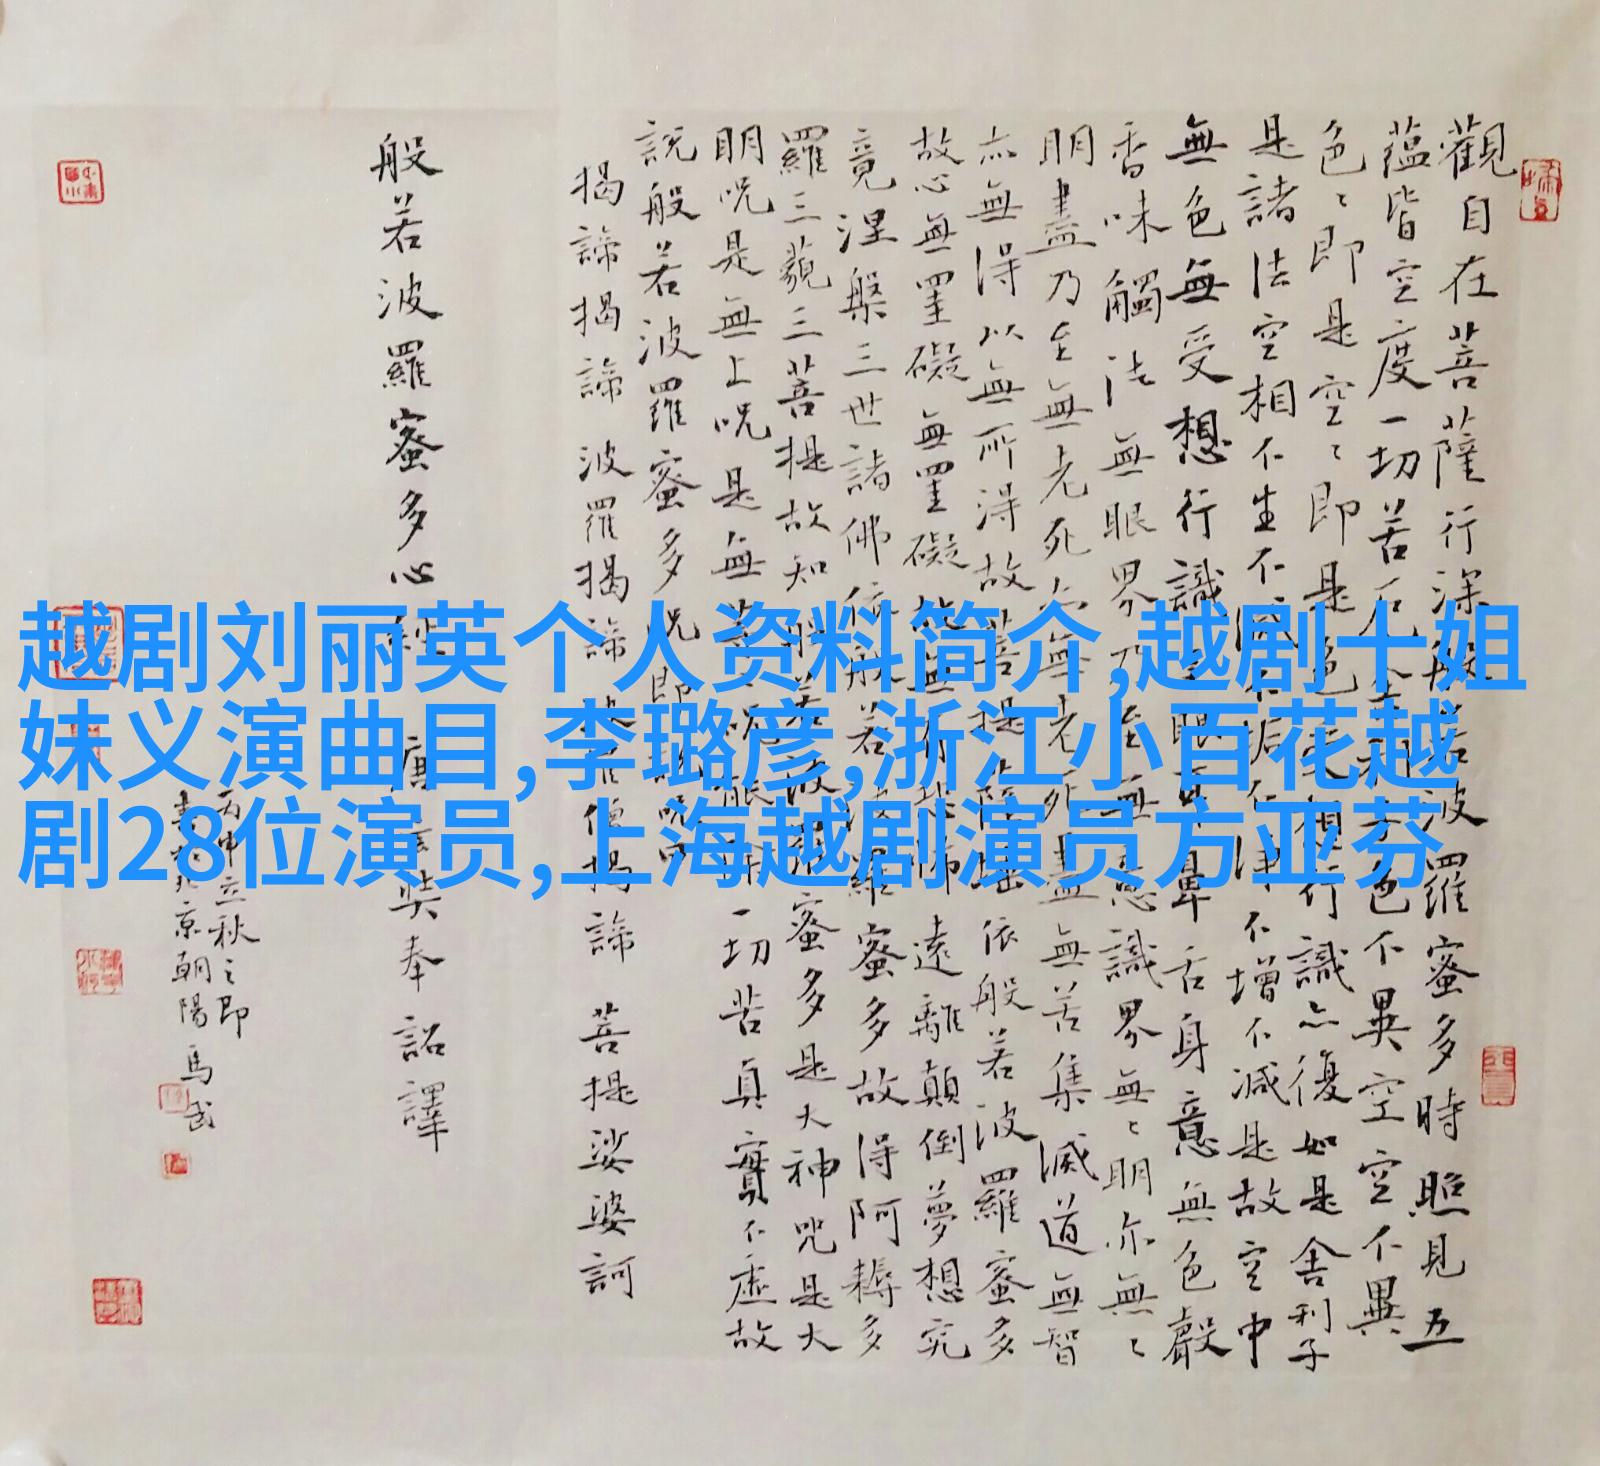 越剧刘丽英个人资料简介,越剧十姐
妹义演曲目,李璐彦,浙江小百花越
剧28位演员,上海越剧演员方亚芬
觀自在菩薩行深般若波羅蜜多時照見五
蘊皆空度一切苦厄舍利子色不異空空不異
色〻即是空〻即是色受想行識亦復如是舍利子
是諸法空相不生不滅不垢不淨不增不減是故空中
無色無受想行識無眼耳鼻舌身意無色聲
香味觸法無眼界乃至無意識界無〻明亦無〻
明盡乃至無老死亦無老死盡無苦集滅道無智
亦無得以無所得故菩提薩埵依般若波羅蜜多
故心無罣礙無罣礙故無有恐怖遠離顛倒夢想究
竟涅槃三世諸佛依般若波羅蜜多故得阿耨多
羅三藐三菩提故知般若波羅蜜多是大神咒是大
明咒是無上咒是無等〻咒能除一切苦真實不虛故
說般若波羅蜜多咒即說咒曰
揭諦揭諦 波羅揭諦 波羅僧揭諦 菩提娑婆訶
般若波羅蜜多心經 唐玄奘奉詔譯
丙申立秋之即
書於北京朝陽馬武